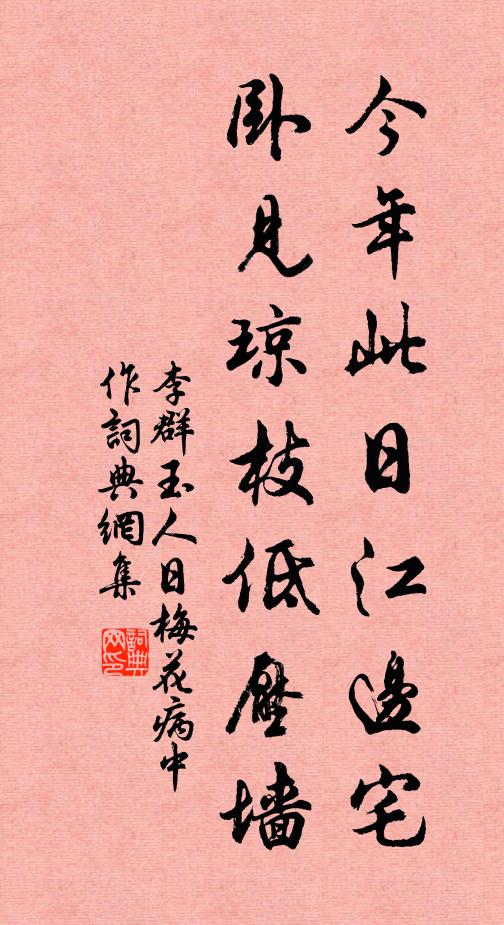 今年此日江邊宅
卧見琼枝低壓墙
李群玉人日梅花病中
作詞典網集
詞典
网印